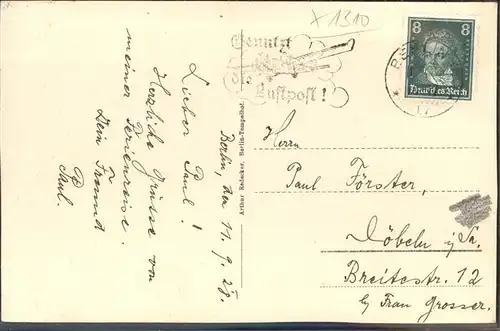 x 1310
Benutzt
die Luftpost!
8 8
Deutsches Reich
Berlin, den 11.9.28.
Lieber Paul!
Herzliche Grüsse von
meiner Ferienreise.
Dein Freund
Paul.
Arthur Redecker, Berlin-Tempelhof.
Herrn
Paul Förster,
Döbeln i/Sa.
Breitestr. 12
by Frau Grosser.